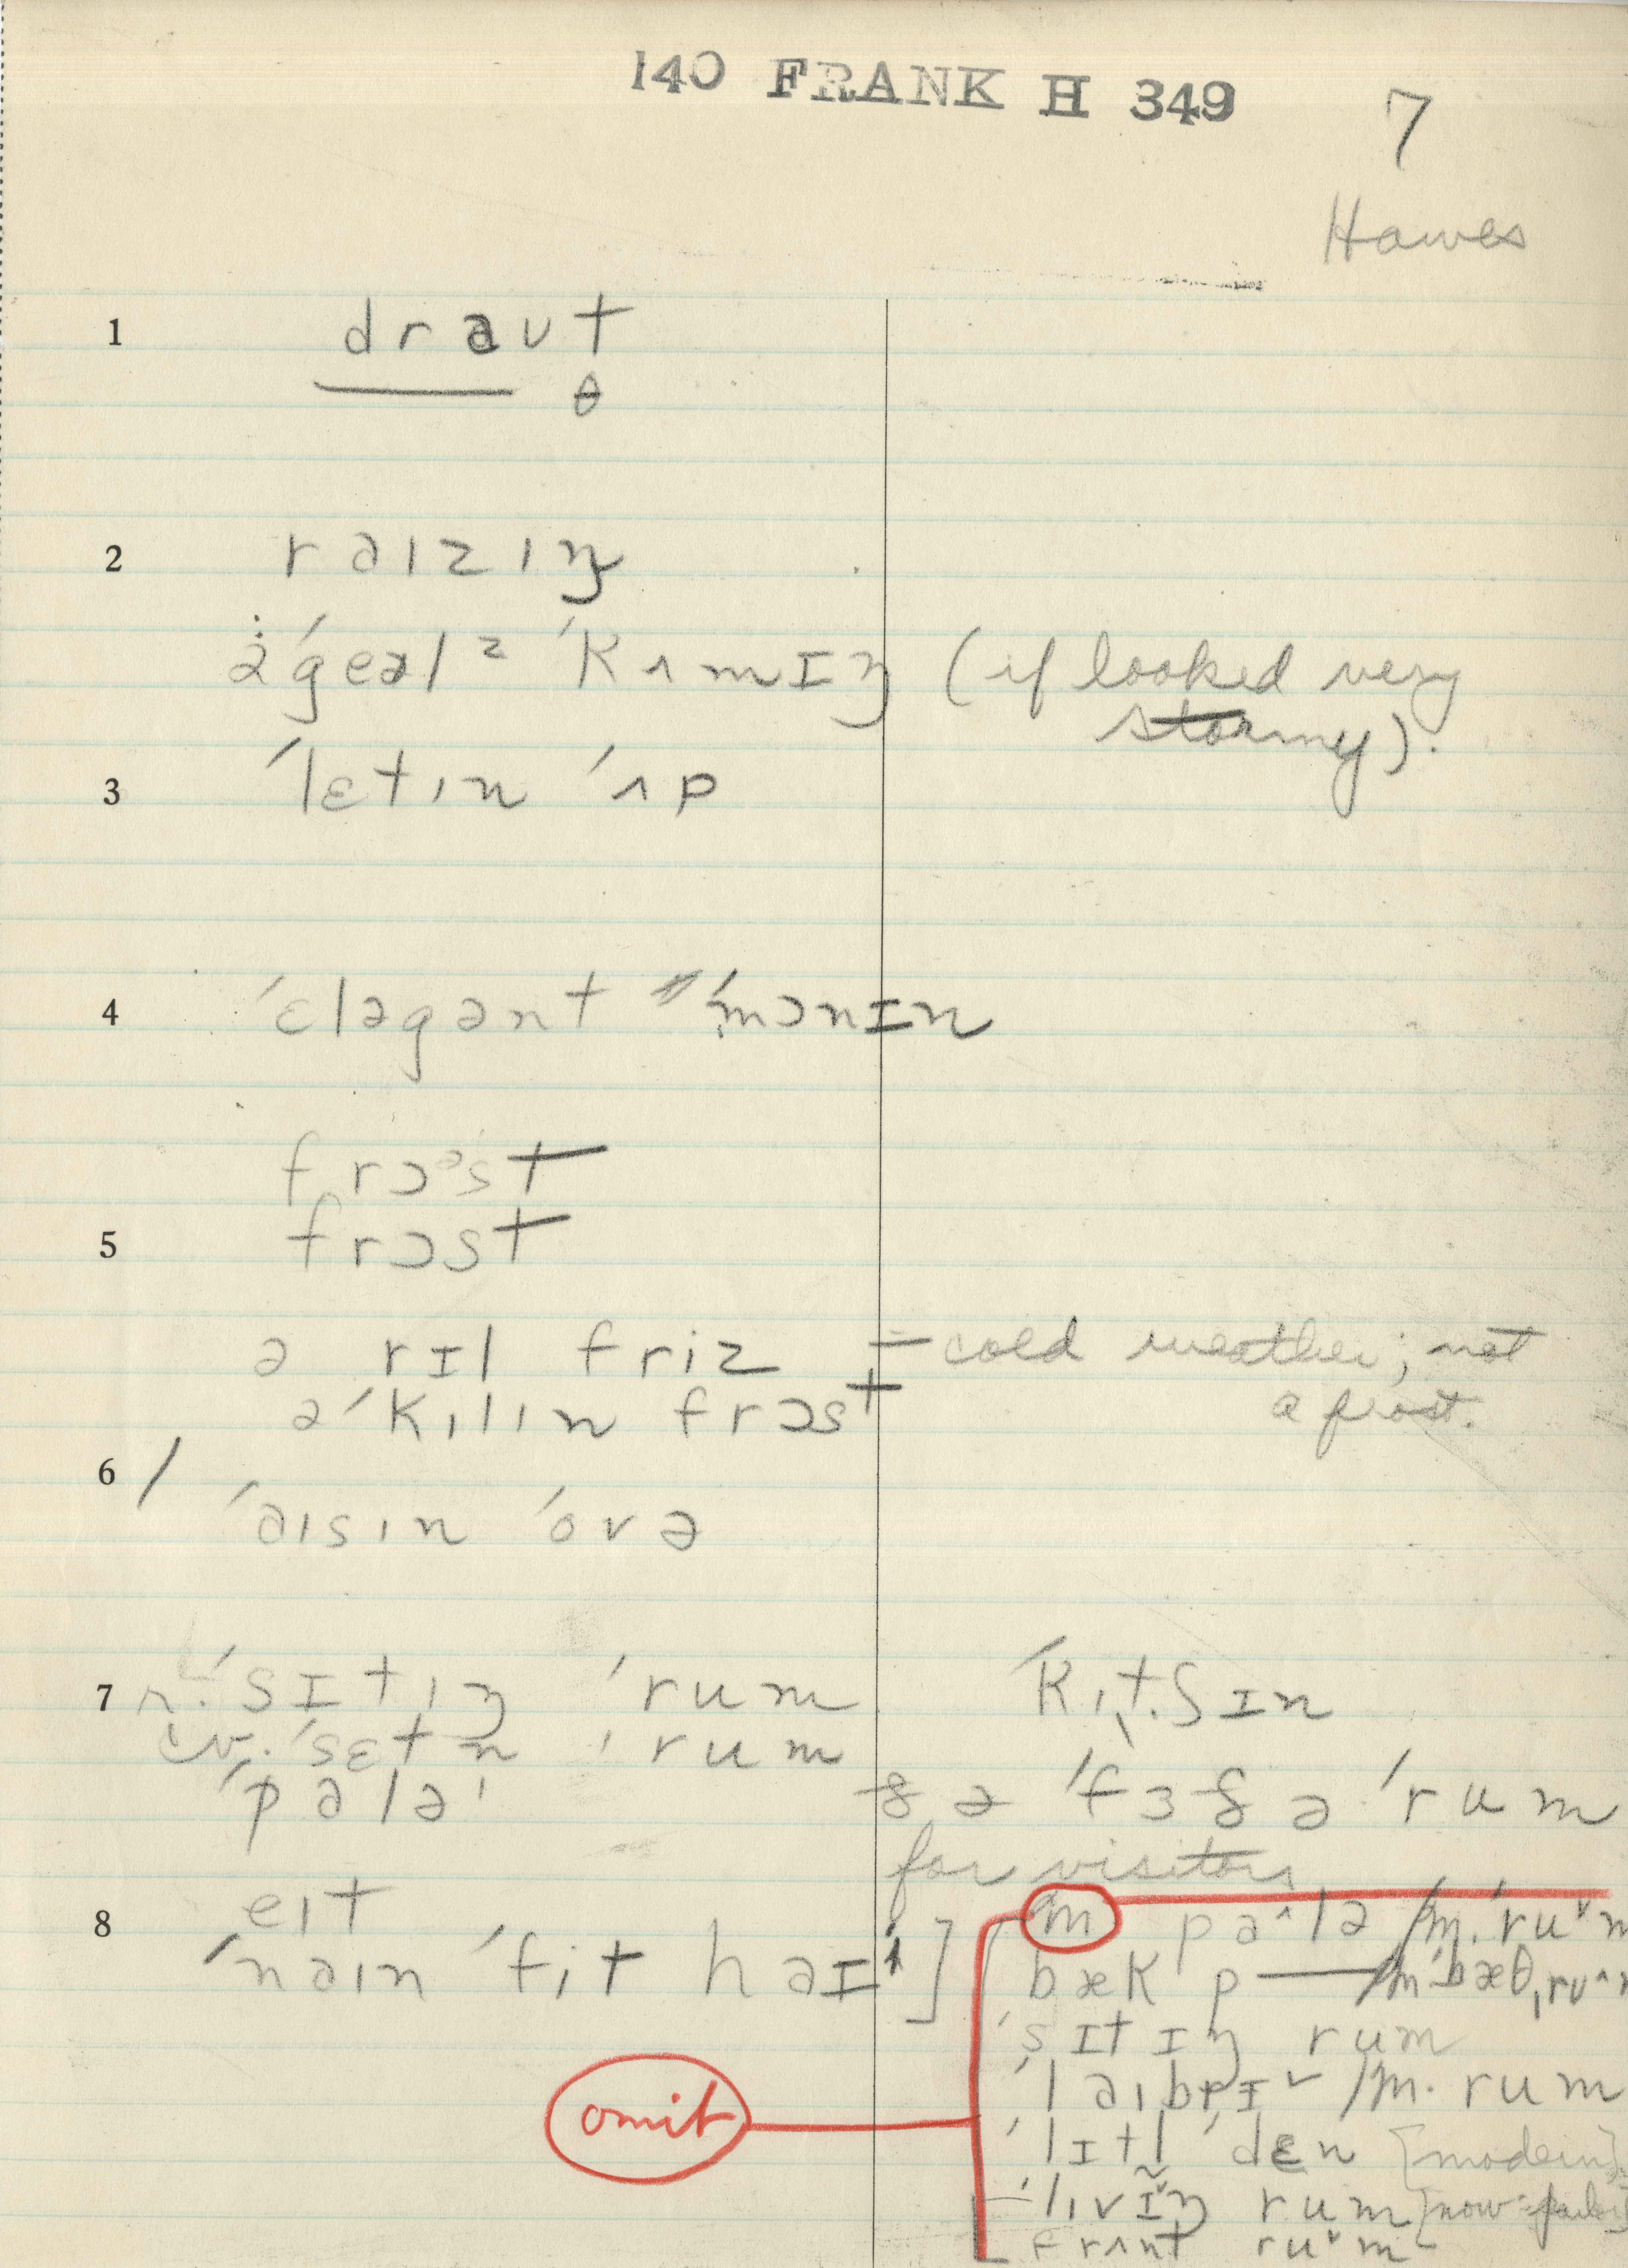 140 FRANK H 349
7
Hawes
1 draʊt
θ
2 rəɪzɪŋ
ə ˈgeəl z ˈkʌmɪŋ (if looked very
stormy).
3 ˈlɛtɪn ˈʌp
4 ˈɛləgənt ˈmɔnɪn
frɔᵊst
5 frɔst
ə rɪl friz = cold weather; not
ə ˈkɪlɪn frɔst a frost.
6 /
ˈəɪsɪn ˈovə
7 r. ˈsɪtɪŋ ˈrum ˈkɪtʃɪn
cv. ˈsɛtn ˈrum
ˈpalə ðə ˈfɜðə ˈrum
for visitors
8 eɪt
ˈnəɪn ˈfit haɪ]
m palə /m. ˈruˇm
bæk p— /m ˈbæθˌruˆm
ˈsɪtɪŋ rum
ˈlaɪbrɪˇ /m. rum
omit
ˈlɪtl ˈdɛn [modern]
ˈlɪvɪŋ rum [now parlor]
frʌnt ruˇm